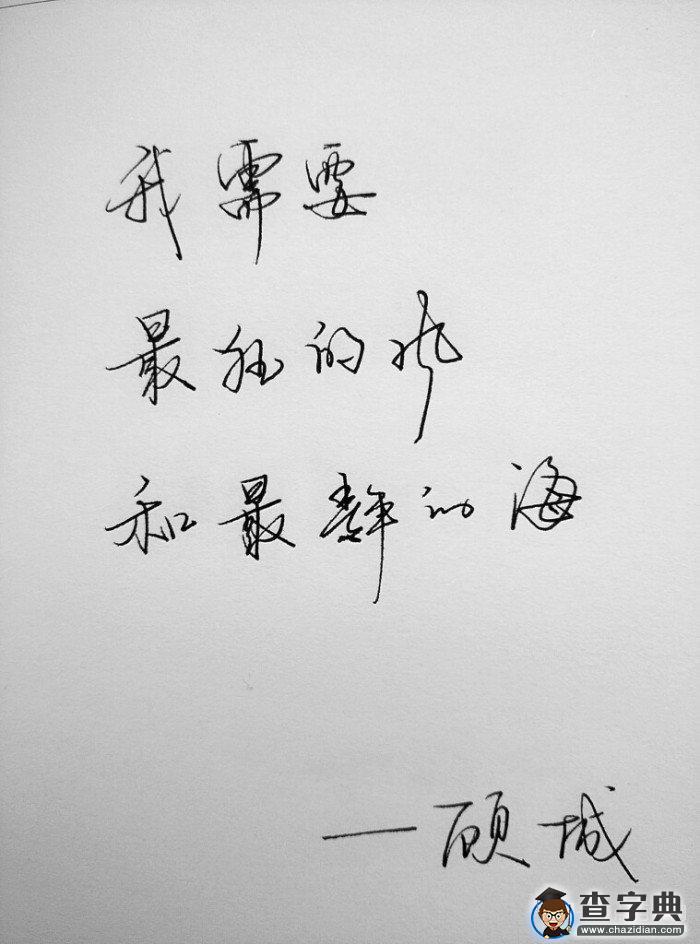 我需要
最狂的风
和最静的海
—顾城
查字典
www.chazidian.com